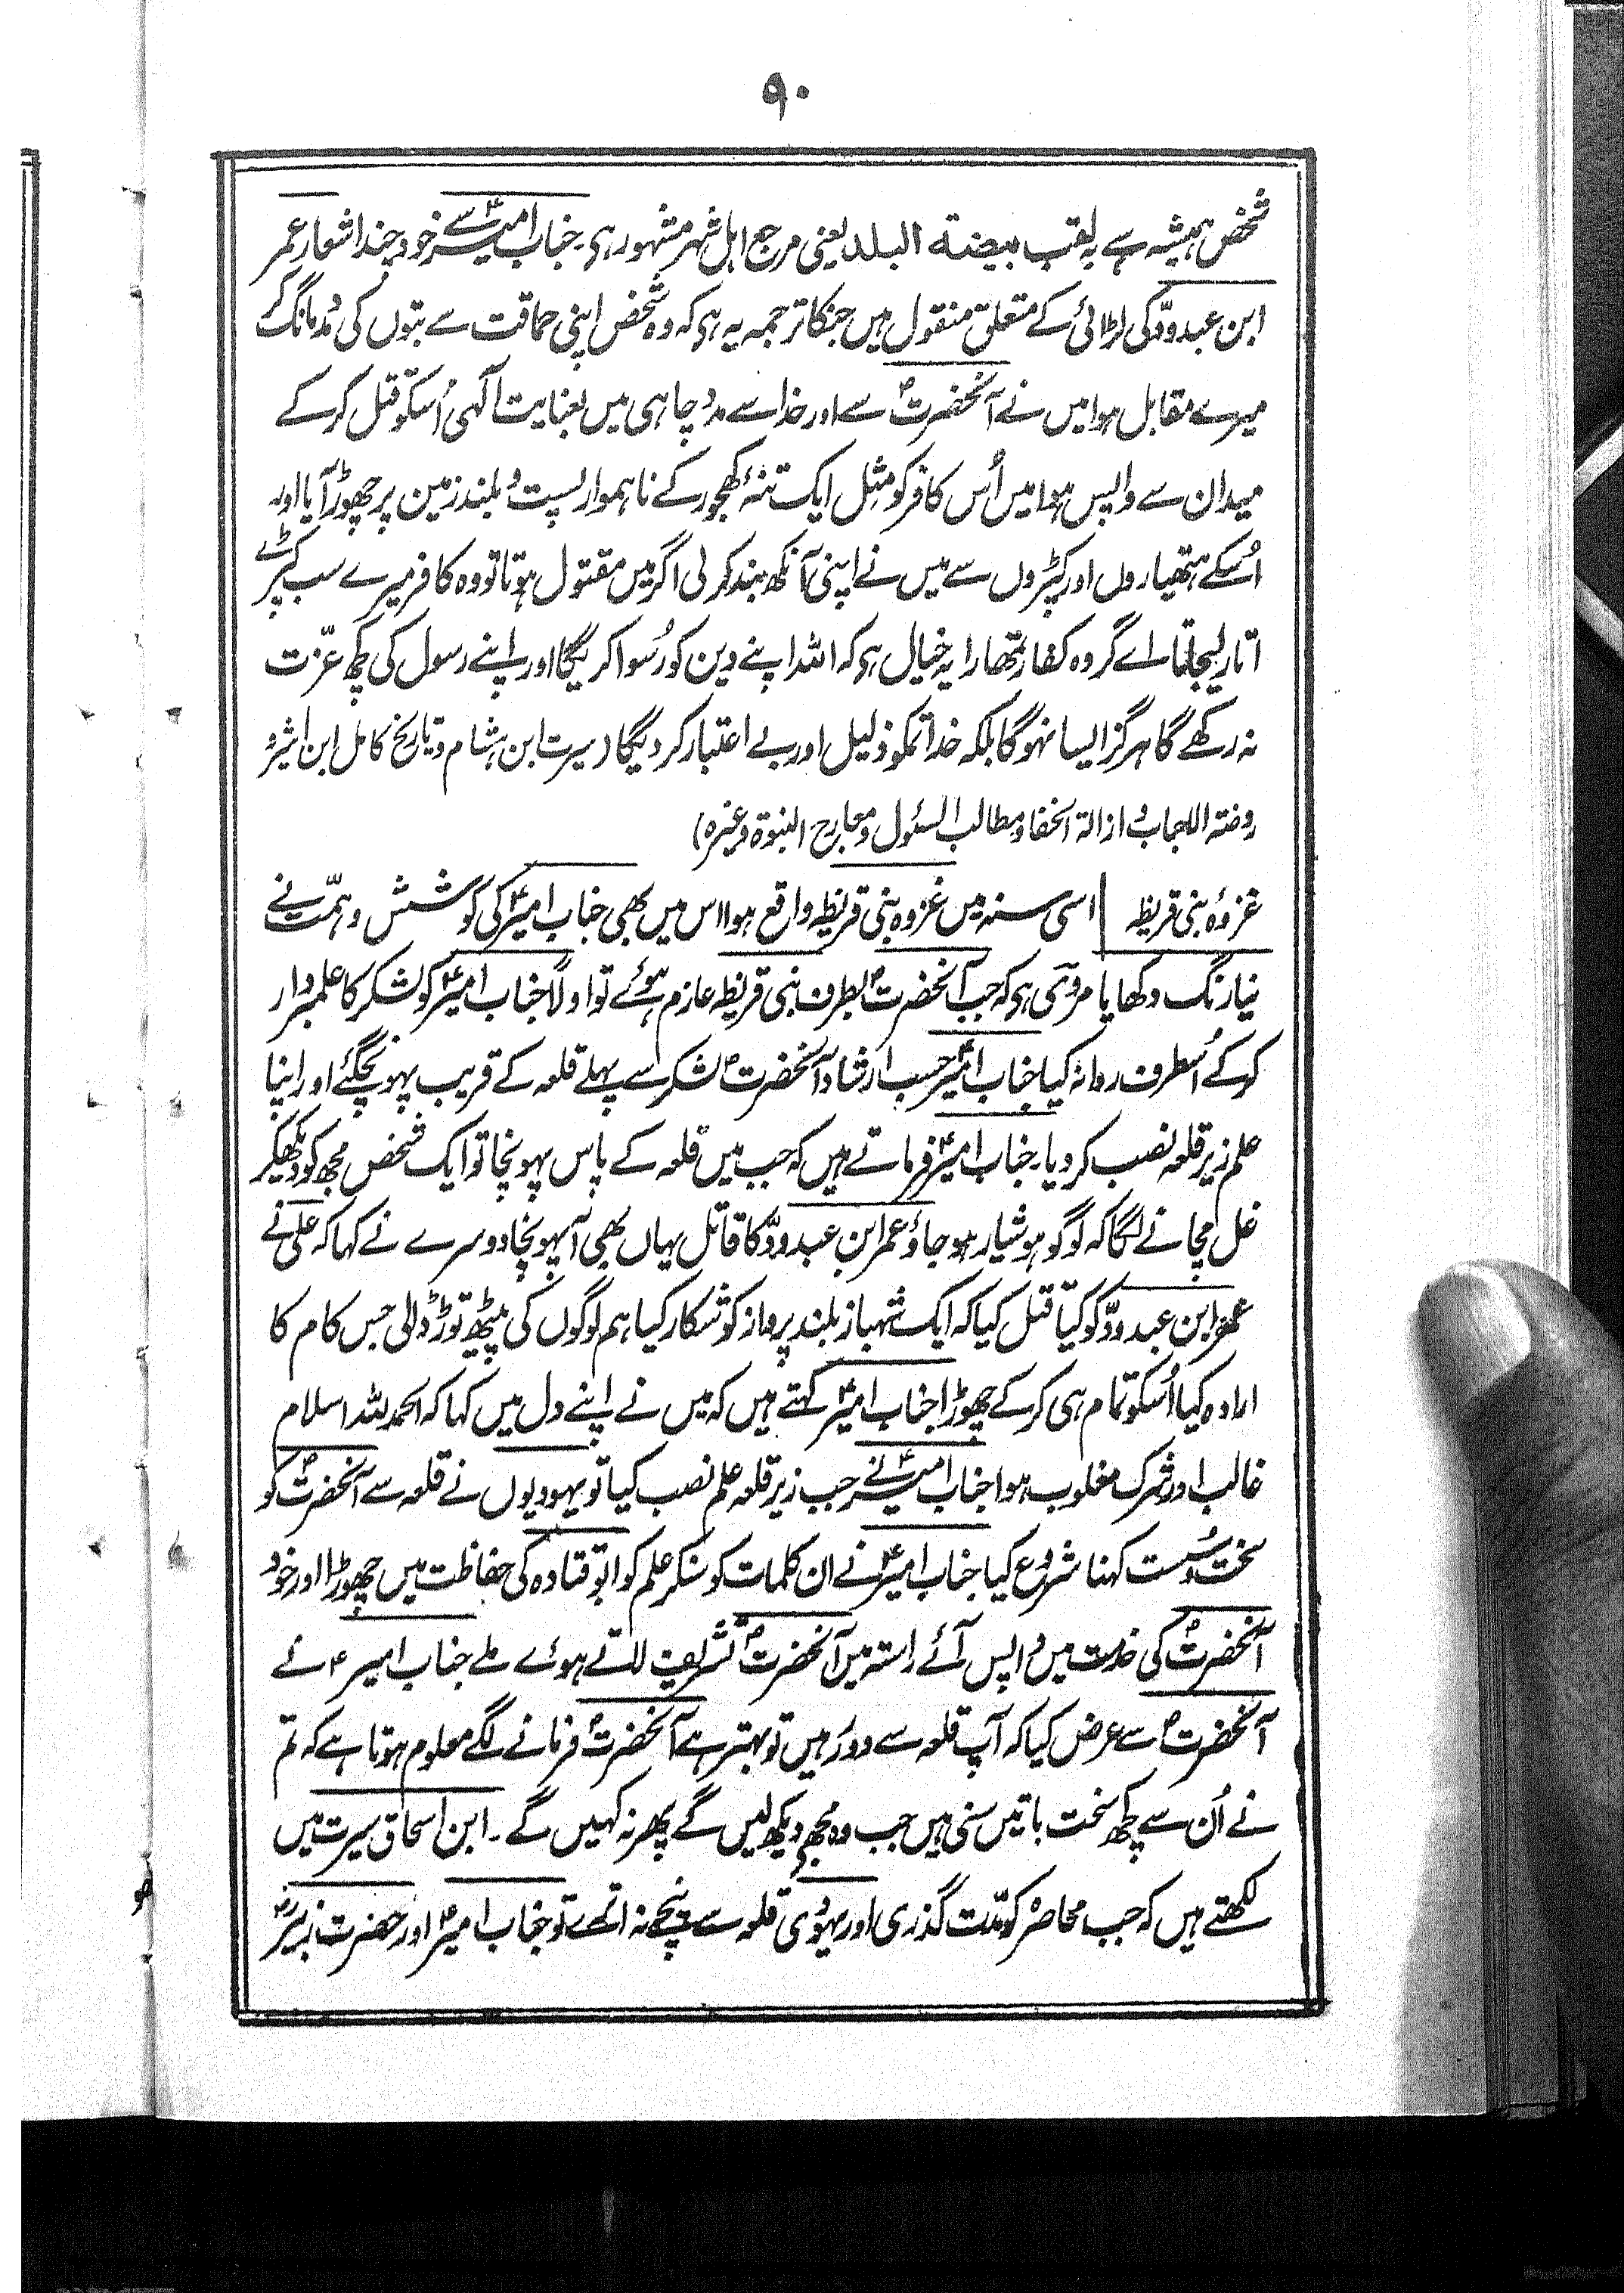 ۹۰
شخص ہمیشہ سے بہ لقب بیضۃ البلد یعنی مرجع اہل شہر مشہور ہی۔ جناب امیرؑ سے خود چند اشعار عمر
ابن عبدودّ کی لڑائی کے متعلق منقول ہیں جنکا ترجمہ یہ ہی کہ وہ شخص اپنی حماقت سے بتوں کی مدد مانگ کے
میرے مقابل ہوا میں نے آنحضرتؐ سے اور خدا سے مدد چاہی میں بعنایت الٰہی اُسکو قتل کر کے
میدان سے واپس ہوا میں اُس کافر کو مثل ایک تنۂ کھجور کے ناہموار پست و بلند زمین پر چھوڑ آیا اور
اُسکے ہتھیاروں اور کپڑوں سے میں نے اپنی آنکھ بند کر لی اگر میں مقتول ہوتا تو وہ کافر میرے سب کپڑے
اتار لیجاتا اے گروہ کفار تمھارا یہ خیال ہی کہ اللہ اپنے دین کو رُسوا کریگا اور اپنے رسول کی کچھ عزّت
نہ رکھے گا ہرگز ایسا نہوگا بلکہ خدا تمکو ذلیل اور بے اعتبار کر دیگا (سیرت ابن ہشام و تاریخ کامل ابن اثیر و
روضۃ الاحباب و ازالۃ الخفا و مطالب السئول و معارج النبوۃ وغیرہ)
غزوۂ بنی قریظہ | اسی سنہ میں غزوہ بنی قریظہ واقع ہوا اس میں بھی جناب امیرؑ کی کوشش و ہمّت نے
نیا رنگ دکھایا مروی ہی کہ جب آنحضرتؐ بطرف بنی قریظہ عازم ہوئے تو اولاً جناب امیرؑ کو لشکر کا علمبردار
کر کے اُسطرف روانہ کیا جناب امیرؑ حسب ارشاد آنحضرتؐ لشکر سے پہلے قلعہ کے قریب پہونچگئے اور اپنا
علم زیر قلعہ نصب کر دیا۔ جناب امیرؑ فرماتے ہیں کہ جب میں قلعہ کے پاس پہونچا تو ایک شخص مجھ کو دیکھکر
غل مچانے لگا کہ لوگو ہوشیار ہو جاؤ عمر ابن عبدودّ کا قاتل یہاں بھی آپہونچا دوسرے نے کہا کہ علی نے
عمر ابن عبدودّ کو کیا قتل کیا کہ ایک شہباز بلند پرواز کو شکار کیا ہم لوگوں کی پیٹھ توڑ ڈالی جس کام کا
ارادہ کیا اُسکو تمام ہی کر کے چھوڑا جناب امیرؑ کہتے ہیں کہ میں نے اپنے دل میں کہا کہ الحمد للہ اسلام
غالب اور شرک مغلوب ہوا جناب امیرؑ نے جب زیر قلعہ علم نصب کیا تو یہودیوں نے قلعہ سے آنحضرتؐ کو
سخت و سُست کہنا شروع کیا جناب امیرؑ نے ان کلمات کو سنکر علم کو ابو قتادہ کی حفاظت میں چھوڑا اور خود
آنحضرتؐ کی خدمت میں واپس آئے راستہ میں آنحضرتؐ تشریف لاتے ہوئے ملے جناب امیر ؑ نے
آنحضرتؐ سے عرض کیا کہ آپ قلعہ سے دور رہیں تو بہتر ہے آنحضرتؐ فرمانے لگے معلوم ہوتا ہے کہ تم
نے اُن سے کچھ سخت باتیں سنی ہیں جب وہ مجھے دیکھ لیں گے پھر نہ کہیں گے۔ ابن اسحاق سیرت میں
لکھتے ہیں کہ جب محاصرہ کو مدّت گذری اور یہودی قلعہ سے نیچے نہ اترے تو جناب امیرؑ اور حضرت زبیرؓ